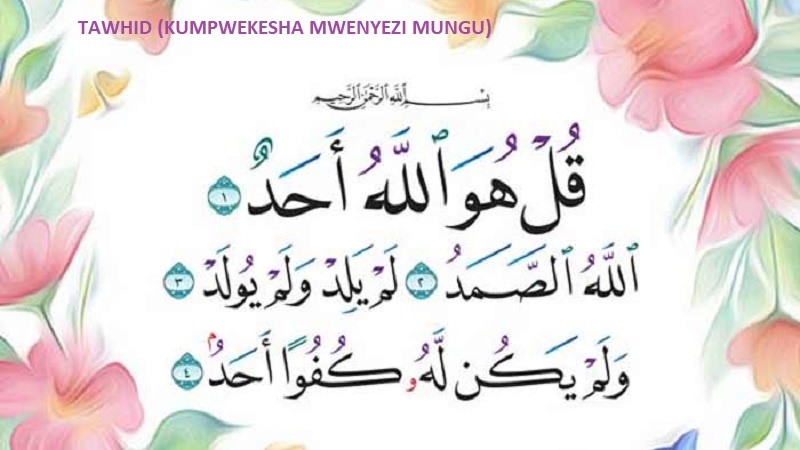 TAWHID (KUMPWEKESHA MWENYEZI MUNGU)
بِسْمِ ٱللَّهِ ٱلرَّحْمَٰنِ ٱلرَّحِيمِ
قُلْ هُوَ ٱللَّهُ أَحَدٌ ١
ٱللَّهُ ٱلصَّمَدُ ٢ لَمْ يَلِدْ وَلَمْ يُولَدْ ٣
وَلَمْ يَكُن لَّهُۥ كُفُوًا أَحَدٌۢ ٤